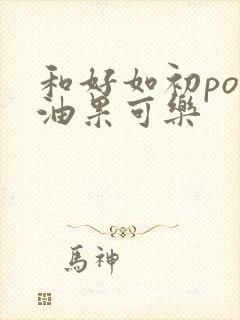 和好如初po
油果可樂
馬神